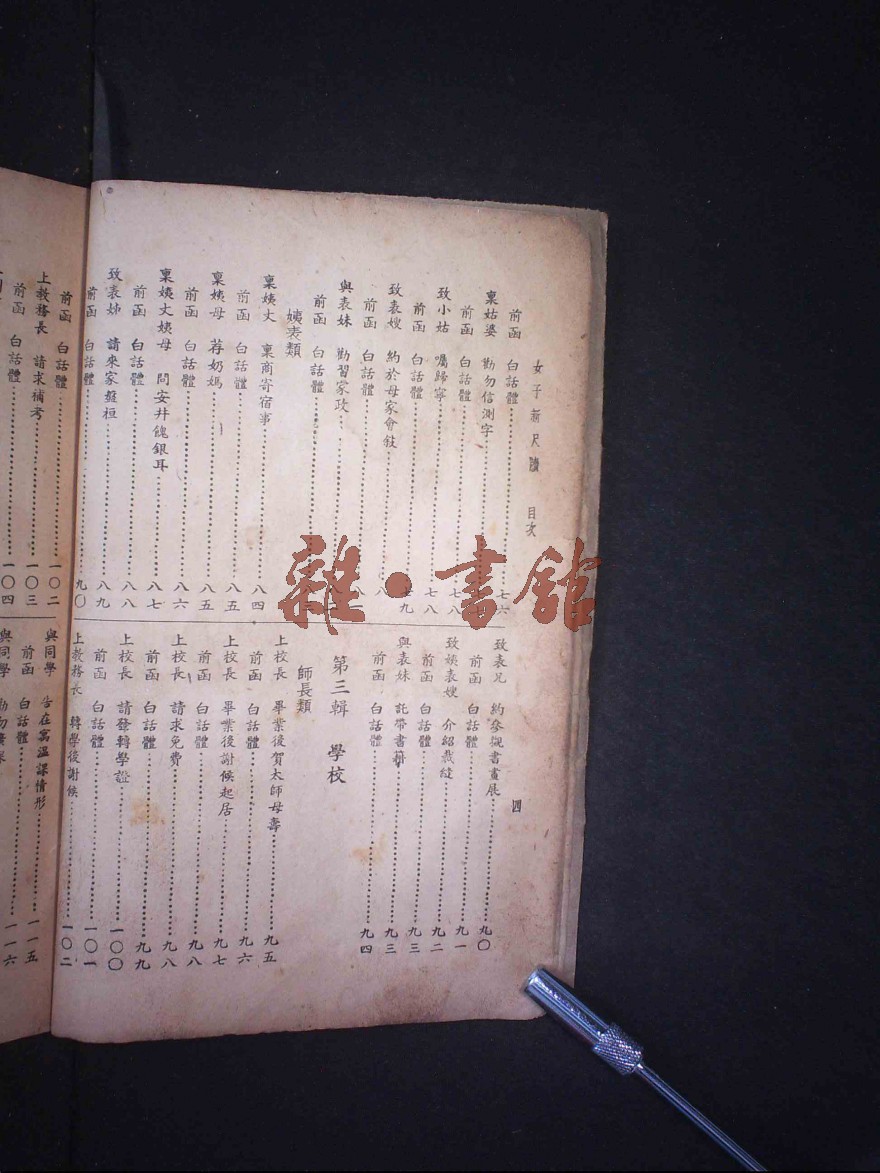 女子新尺牘 目次
四
前函 白話體 七六
稟姑婆 勸勿信測字
前函 白話體 七八
致小姑 囑歸寧 七八
前函 白話體 七九
致表嫂 約於母家會敍
前函 白話體
與表妹 勸習家政
前函 白話體
姨表類
稟姨丈 稟商寄宿事 八四
前函 白話體 八五
稟姨母 荐奶媽 八五
前函 白話體 八六
稟姨丈姨母 問安并餽銀耳 八七
前函 白話體 八八
致表姊 請來家盤桓 八九
前函 白話體 九〇
致表兄 約參觀書畫展 九〇
前函 白話體 九一
致姨表嫂 介紹裁縫 九二
前函 白話體 九三
與表妹 託帶書籍 九三
前函 白話體 九四
第三輯 學校
師長類
上校長 畢業後賀太師母壽 九五
前函 白話體 九六
上校長 畢業後謝候起居 九七
前函 白話體 九八
上校長 請求免費 九八
前函 白話體 九九
上校長 請發轉學證 一〇〇
前函 白話體 一〇一
上教務長 轉學後謝候 一〇二
前函 白話體 一〇二
上教務長 請求補考 一〇三
前函 白話體 一〇四
與同學 告在寓溫課情形 一一五
前函 白話體 一一六
與同學 勸勿
雜·書館